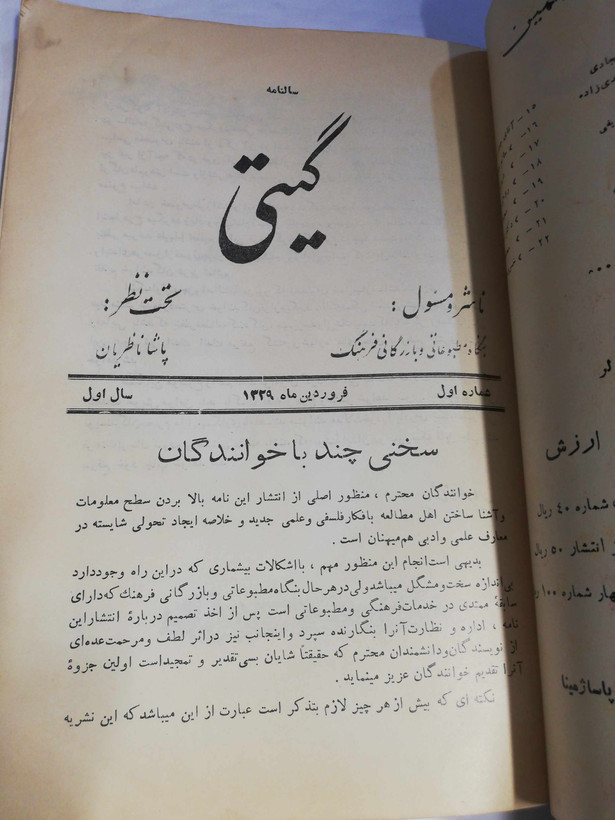 سالنامه
گیتی
ناشر و مسئول :
تحت نظر :
بنگاه مطبوعاتی و بازرگانی فرهنگ
پاشا ناظریان
شماره اول
فروردین ماه ۱۳۲۹
سال اول
سخنی چند با خوانندگان
خوانندگان محترم ، منظور اصلی از انتشار این نامه بالا بردن سطح معلومات
و آشنا ساختن اهل مطالعه بافکار فلسفی و علمی جدید و خلاصه ایجاد تحولی شایسته در
معارف علمی و ادبی هم‌میهنان است .
بدیهی است انجام این منظور مهم ، با اشکالات بیشماری که در این راه وجود دارد
بی‌اندازه سخت و مشگل میباشد ولی در هر حال بنگاه مطبوعاتی و بازرگانی فرهنگ که دارای
سابقهٔ ممتدی در خدمات فرهنگی و مطبوعاتی است پس از اخذ تصمیم دربارهٔ انتشار این
نامه ، اداره و نظارت آنرا بنگارنده سپرد و اینجانب نیز در اثر لطف و مرحمت عده‌ای
از نویسندگان و دانشمندان محترم که حقیقتاً شایان بسی تقدیر و تمجید است اولین جزوهٔ
آنرا تقدیم خوانندگان عزیز مینماید .
نکته ای که بیش از هر چیز لازم بتذکر است عبارت از این میباشد که این نشریه
۱۵ –
۱۶ –
۱۷ – ۲
۱۸ – ۲
۱۹ – ۲
۲۰ – ۲
۲۱ – ۲
۲۲ – ۲
ارزش
شماره ۴۰ ریال
انتشار ۵۰ ریال
شماره ۱۰۰
پاساژ مینا